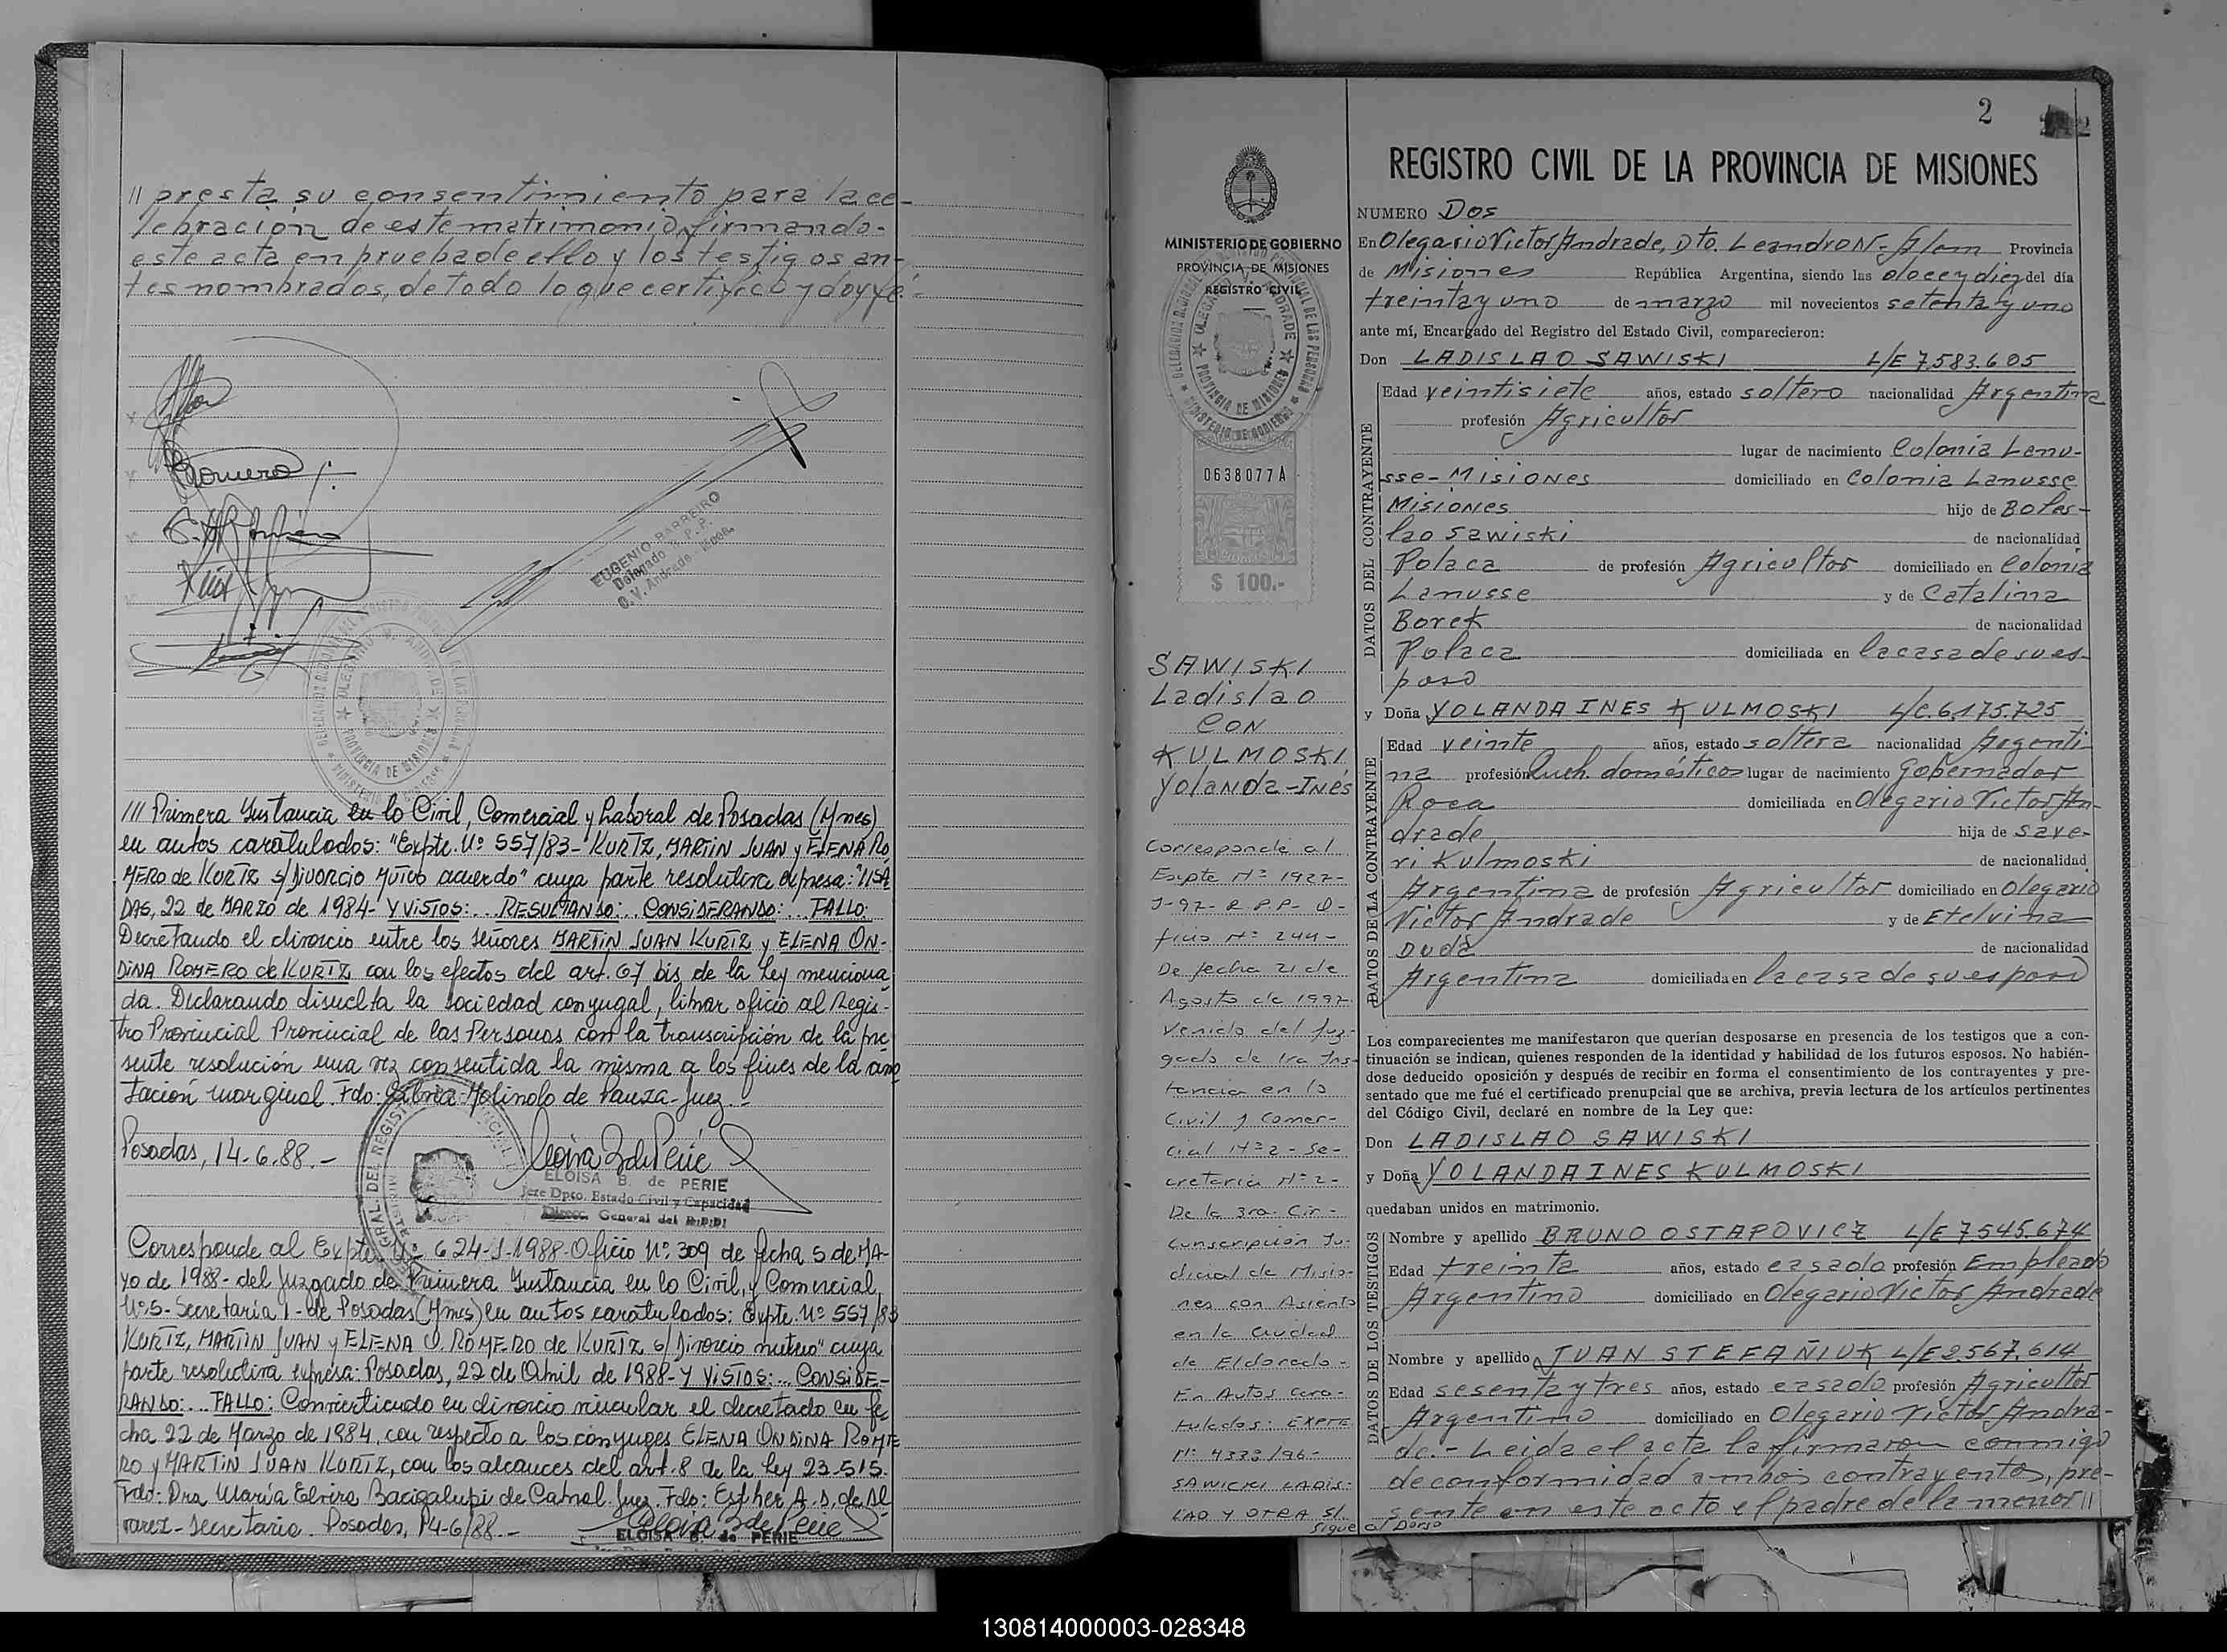 // presta su consentimiento para la ce-
lebración de este matrimonio, firmando-
este acta en prueba de ello y los testigos an-
tes nombrados, de todo lo que certifico y doy fé.-
Romero
EUGENIO BARREIRO
Delegado R. P. P.
O. V. Andrade - Mnes.
/// Primera Instancia en lo Civil, Comercial y Laboral de Posadas (Mnes)
en autos caratulados: "Expte. Nº 557/83- KURTZ, MARTIN JUAN y ELENA RO
MERO de KURTZ s/ Divorcio mutuo acuerdo" cuya parte resolutiva expresa:
DAS, 22 de MARZO de 1984- Y VISTOS: .. RESULTANDO: .. CONSIDERANDO: ... FALLO:
Decretando el divorcio entre los señores MARTIN JUAN KURTZ y ELENA ON-
DINA ROMERO de KURTZ, con los efectos del art. 67 bis de la ley menciona
da. Declarando disuelta la sociedad conyugal, librar oficio al Regis-
tro Provincial Provincial de las Personas con la transcripción de la pre
sente resolución una vez consentida la misma a los fines de la ano
tación marginal. Fdo: Molinolo de Pauza- Juez.-
Posadas, 14-6-88.-
ELOISA B. de PERIE
Jefe Dpto. Estado Civil y Capacidad
Direcc. General del R.P.P.
Corresponde al Expte Nº 624-J-1988-Oficio Nº 309 de fecha 5 de MA-
yo de 1988- del Juzgado de Primera Instancia en lo Civil y Comercial
Nº5- Secretaría 1- de Posadas (Mnes) en autos caratulados: Expte. Nº 557/83
KURTZ, MARTIN JUAN y ELENA O. ROMERO de KURTZ s/ Divorcio mutuo" cuya
parte resolutiva expresa: Posadas, 22 de Abril de 1988- Y VISTOS: ... CONSIDE-
RANDO: ... FALLO: Convirtiendo en divorcio vincular el decretado en fe
cha 22 de Marzo de 1984, con respecto a los cónyuges ELENA ONDINA ROME
RO y MARTIN JUAN KURTZ, con los alcances del art. 8 de la ley 23.515.
Fdo: Dra María Elvira Bacigalupi de Cabral. Juez. Fdo: Esther A. S. de Al
varez- Secretaria. Posadas, 14-6/88.-
ELOISA B. de PERIE
2
MINISTERIO DE GOBIERNO
PROVINCIA DE MISIONES
REGISTRO CIVIL
0638077A
$ 100.-
SAWISKI
Ladislao
CON
KULMOSKI
Yolanda-Inés
Corresponde al
Expte Nº 1927-
J-97- R.P.P- O-
ficio Nº 244-
De fecha 21 de
Agosto de 1997
Venido del Juz-
gado de 1ra Ins-
tancia en lo
Civil y Comer-
cial Nº 2- Se-
cretaria Nº 2-
De la 3ra. Cir-
cunscripción Ju-
dicial de Misio-
nes con Asiento
en la Ciudad
de Eldorado-
En Autos Cara-
tulados: EXPTE
Nº 4323/96-
SAWICKI LADIS-
LAO Y OTRA S/.
Sigue al Dorso
REGISTRO CIVIL DE LA PROVINCIA DE MISIONES
NUMERO Dos
En Olegario Victor Andrade, Dto. Leandro N- Alem Provincia
de Misiones República Argentina, siendo las doce y diez del día
treinta y uno de marzo mil novecientos setenta y uno
ante mí, Encargado del Registro del Estado Civil, comparecieron:
Don LADISLAO SAWISKI L/E 7.583.605
DATOS DEL CONTRAYENTE
Edad veintisiete años, estado soltero nacionalidad Argentina
profesión Agricultor
lugar de nacimiento Colonia Lanu-
sse- Misiones domiciliado en Colonia Lanusse
Misiones hijo de Boles-
lao Sawiski de nacionalidad
Polaca de profesión Agricultor domiciliado en Colonia
Lanusse y de Catalina
Borek de nacionalidad
Polaca domiciliada en la casa de su es-
poso
y Doña YOLANDA INES KULMOSKI L/C.6.175.725
DATOS DE LA CONTRAYENTE
Edad veinte años, estado soltera nacionalidad Argenti-
na profesión Queh. domésticos lugar de nacimiento Gobernador
Roca domiciliada en Olegario Victor An-
drade hija de Save-
ri Kulmoski de nacionalidad
Argentina de profesión Agricultor domiciliado en Olegario
Victor Andrade y de Etelvina
Duda de nacionalidad
Argentina domiciliada en la casa de su esposo
Los comparecientes me manifestaron que querían desposarse en presencia de los testigos que a con-
tinuación se indican, quienes responden de la identidad y habilidad de los futuros esposos. No habién-
dose deducido oposición y después de recibir en forma el consentimiento de los contrayentes y pre-
sentado que me fué el certificado prenupcial que se archiva, previa lectura de los artículos pertinentes
del Código Civil, declaré en nombre de la Ley que:
Don LADISLAO SAWISKI
y Doña YOLANDA INES KULMOSKI
quedaban unidos en matrimonio.
DATOS DE LOS TESTIGOS
Nombre y apellido BRUNO OSTAPOVICZ L/E 7545.674
Edad treinta años, estado casado profesión Empleado
Argentino domiciliado en Olegario Victor Andrade
Nombre y apellido JUAN STEFAÑIUK L/E 2.567.614
Edad sesenta y tres años, estado casado profesión Agricultor
Argentino domiciliado en Olegario Victor Andra-
de.- Leida el acta la firmaron conmigo
de conformidad ambos contrayentes, pre-
sente en este acto el padre de la menor //
130814000003-028348